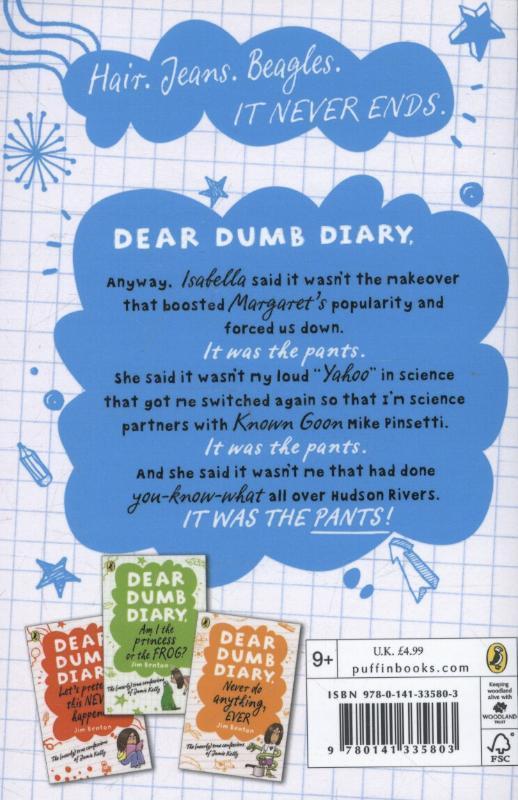 Hair. Jeans. Beagles.
IT NEVER ENDS.
DEAR DUMB DIARY,
Anyway, Isabella said it wasn't the makeover
that boosted Margaret's popularity and
forced us down.
It was the pants.
She said it wasn't my loud "Yahoo" in science
that got me switched again so that I'm science
partners with Known Goon Mike Pinsetti.
It was the pants.
And she said it wasn't me that had done
you-know-what all over Hudson Rivers.
IT WAS THE PANTS!
DEAR
DUMB
DIARY,
Am I the
princess
or the FROG?
Jim Benton
The (nearly) true confessions
of Jamie Kelly
DEAR
DUM
DIAR
Let's prete
this NEV
happen
Jim Benton
The (nearly) true confessions
of Jamie Kelly
DEAR
DUMB
DIARY,
Never do
anything,
EVER
Jim Benton
The (nearly) true confessions
of Jamie Kelly
9+
U.K. £4.99
puffinbooks.com
ISBN 978-0-141-33580-3
9 780141 335803
Keeping
woodland
alive with
WOODLAND
TRUST
FSC